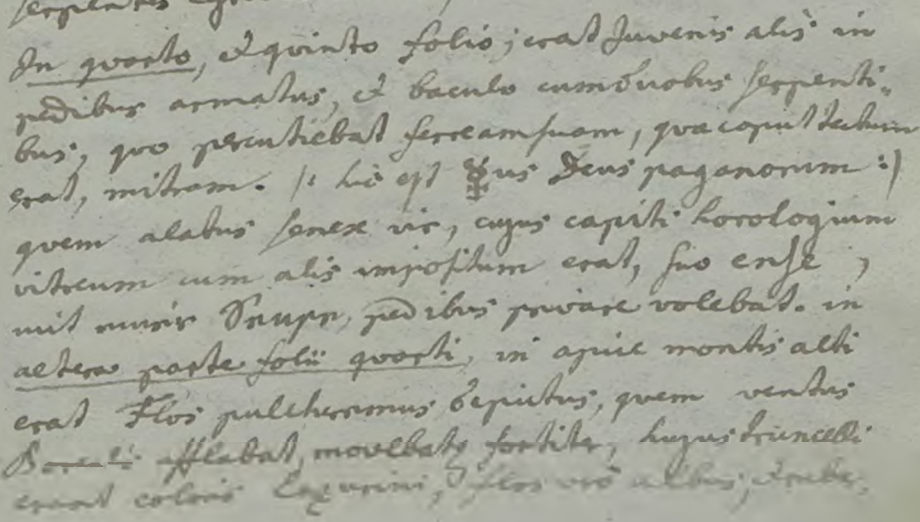 In quarto, & quinto folio; erat Juvenis alis in
pedibus armatus, & baculo cum duobus serpenti„
bus, quo percutiebat ferream suam, qua caput tectum
erat, mitram. /: hic est ☿us Deus paganorum :/
quem alatus senex vir, cujus capiti horologium
vitreum cum alis impositum erat, suo ense,
mit, pedibus privare volebat. in
altera parte folii quarti, in apice montis alti
erat Flos pulcherrimus depictus, quem ventus
afflabat, movebatq fortiter, hujus truncelli
erant coloris, flos vero albus,